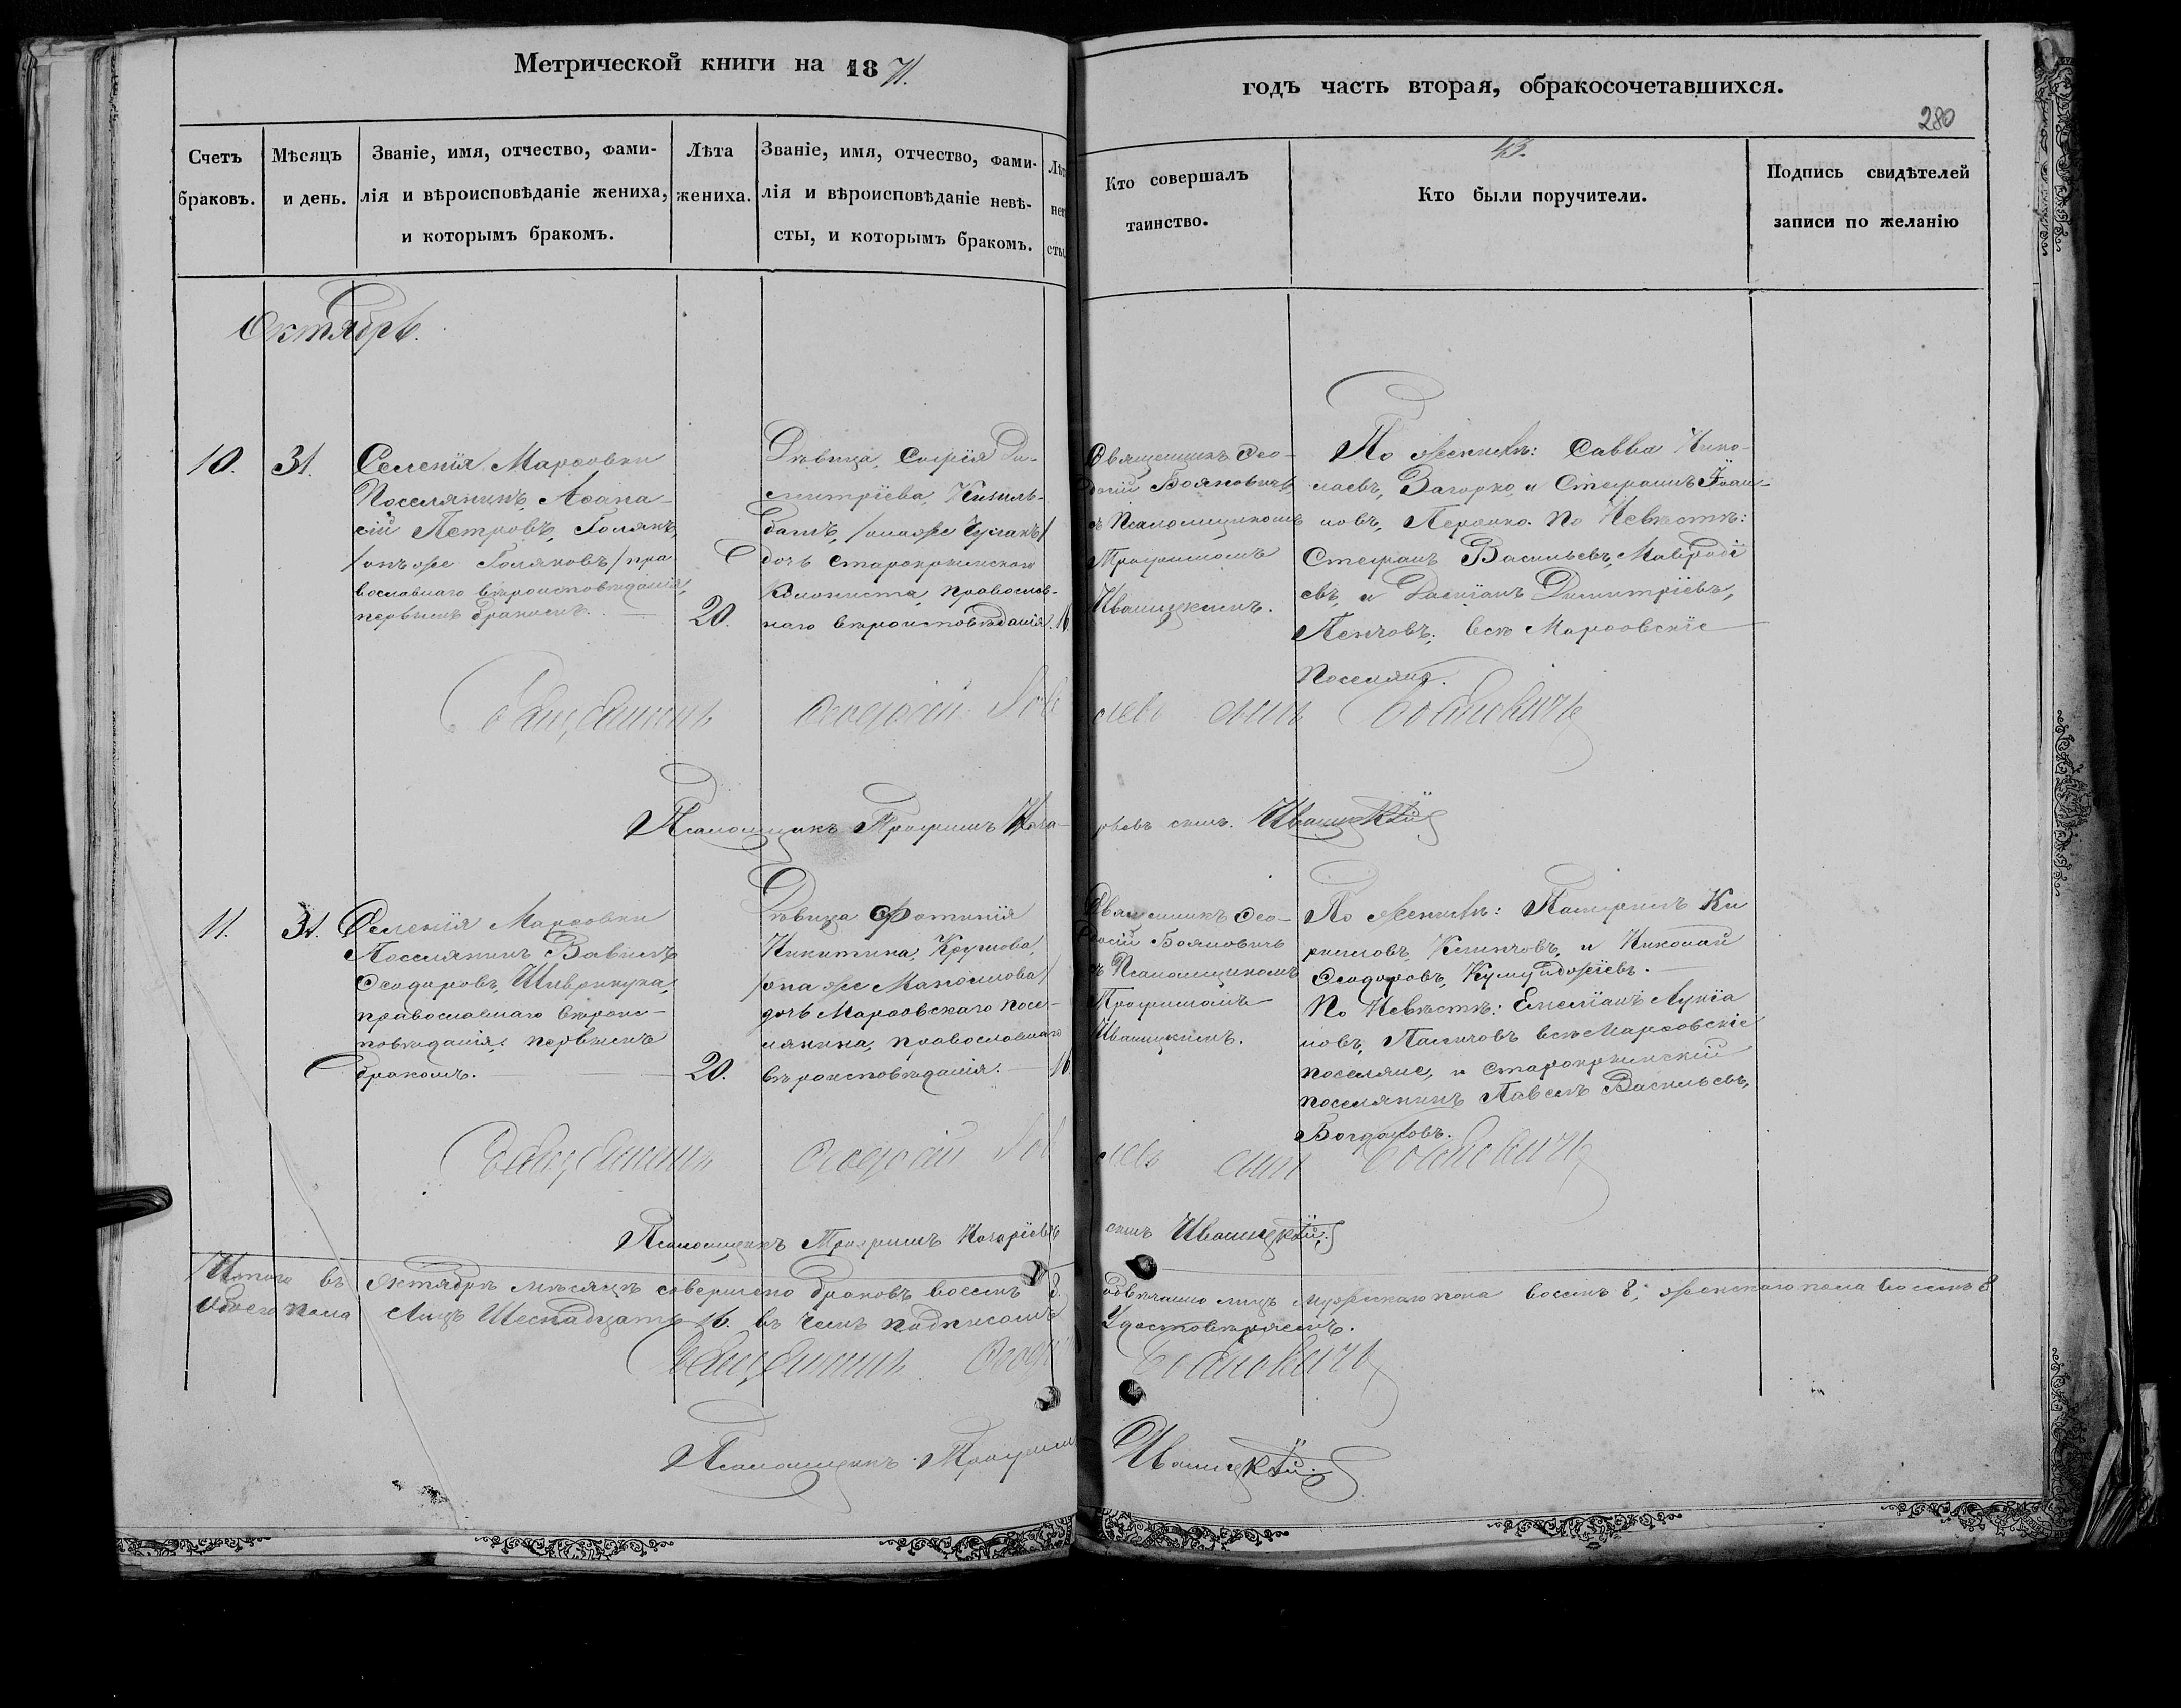 Метрической книги на 1871.
годъ часть вторая, обракосочетавшихся.
280
43.
Счетъ браковъ.
Мѣсяцъ и день.
Званіе, имя, отчество, фами-
лія и вѣроисповѣданіе жениха,
и которымъ бракомъ.
Лѣта
жениха.
Званіе, имя, отчество, фами-
лія и вѣроисповѣданіе невѣ-
сты, и которымъ бракомъ.
Лѣт
нев
сты.
Кто совершалъ
таинство.
Кто были поручители.
Подпись свидѣтелей
записи по желанію
Октябрь.
10.
31.
Селенія Марѳовки
Поселянинъ, Аѳана-
сій Петровъ, Голякъ,
/онъ же Голяковъ/ пра
вославнаго вѣроисповѣданія,
первымъ бракомъ.
20.
Дѣвица, Софія Ди-
митріева, Кизиль-
башъ, /она же
дочь Старокрымскаго
Колониста, православ-
наго вѣроисповѣданія.
16.
Священникъ Ѳео-
досій Бояновичъ,
съ Псаломщикомъ
Трофимомъ
Ивашрижскимъ.
По женихѣ: Савва Нико-
лаевъ, Загорко, и Стефанъ Іоан-
новъ, По Невѣстѣ:
Стефанъ Васильевъ, Мавроді
евъ, и Даміанъ Димитріевъ,
Пенчовъ; всѣ Марѳовскіе
Поселяне.
Священникъ Ѳеодосій Іовлевъ сынъ Бояновичъ
Псаломщикъ Трофимъ
сынъ.
11.
31.
Селенія Марѳовки
Поселянинъ Вавилъ
Ѳеодоровъ,
православнаго вѣроис-
повѣданія, первымъ
бракомъ.
20.
Дѣвица Фотинія
Никитина, Крушова,
/она же Манолова/
дочь Марѳовскаго посе-
лянина, православнаго
вѣроисповѣданія.
16
Священникъ Ѳео-
досій Бояновичъ
съ Псаломщикомъ
Трофимомъ
По женихѣ: Памфилъ Ки
рилловъ, Климчовъ, и Николай
Ѳеодоровъ, Кумуйджіевъ.
По Невѣстѣ: Емеліанъ Лукіа
новъ, Паничовъ всѣ Марѳовскіе
поселяне, и Старокрымскій
поселянинъ Павелъ Васильевъ,
Богдановъ.
Священникъ Ѳеодосій Іовлевъ сынъ Бояновичъ
Псаломщикъ Трофимъ сынъ
Итого въ Октябрѣ мѣсяцѣ совершено браковъ восемь 8. повѣнчано лицъ мужескаго пола восемь 8, женскаго пола восемь 8
обоего пола лицъ Шестнадцать 16. въ чемъ подписомъ Удостовѣряемъ.
Священникъ Ѳеодосій Бояновичъ
Псаломщикъ Трофимъ